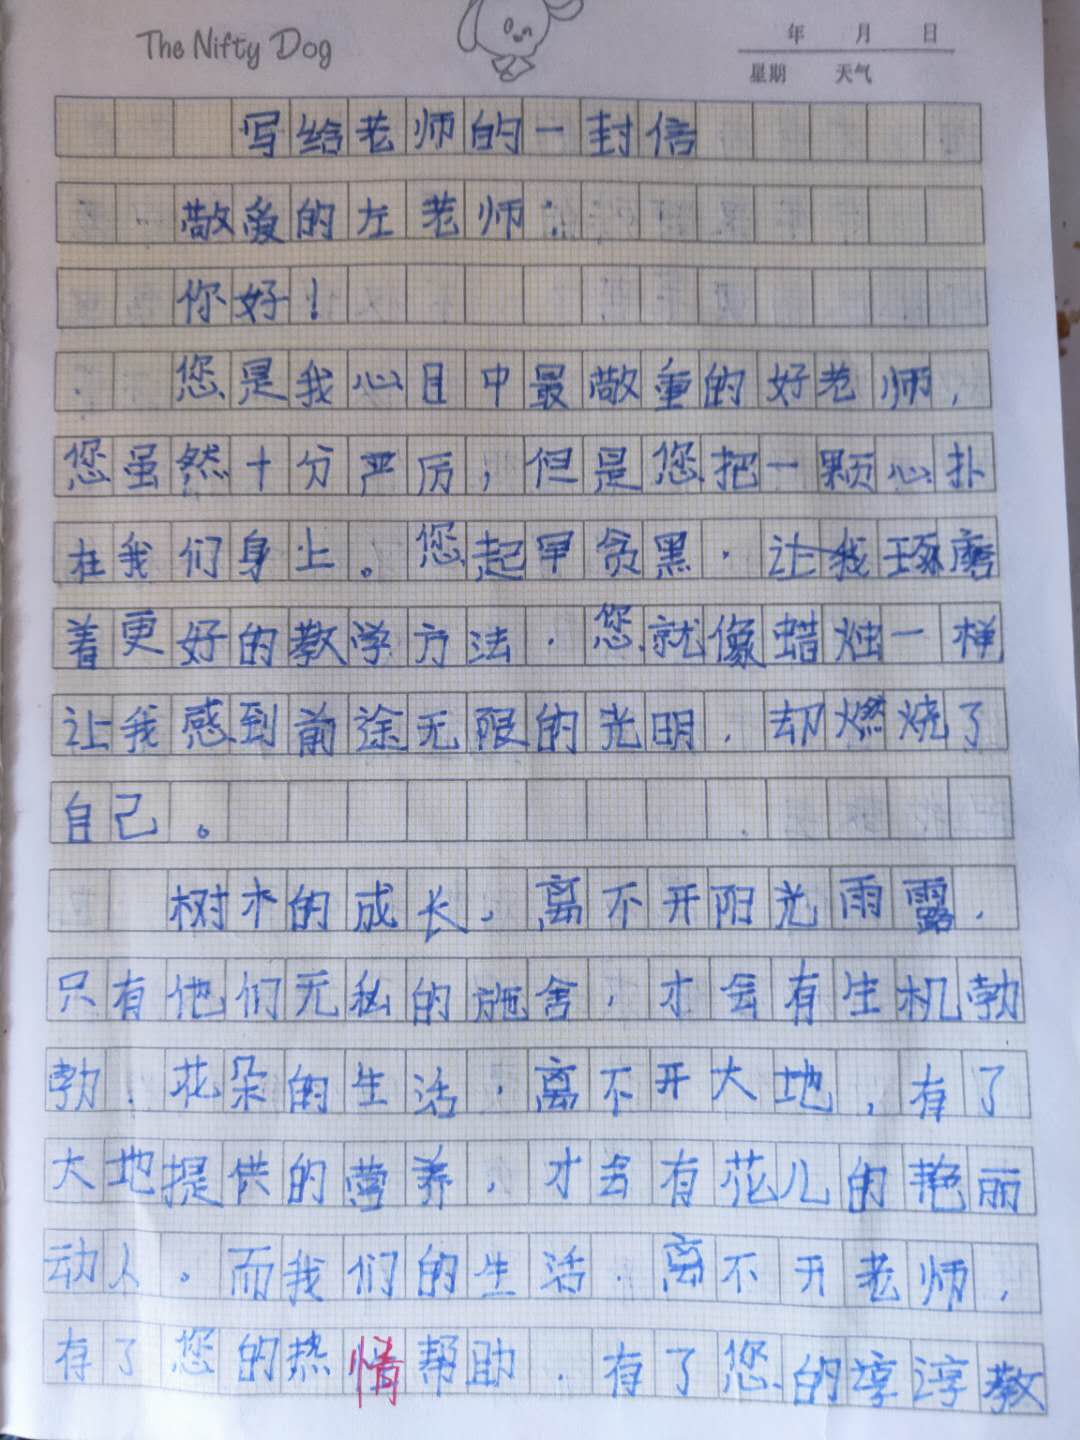 The Nifty Dog
年 月 日
星期 天气
写给老师的一封信
敬爱的左老师：
你好！
您是我心目中最敬重的好老师，
您虽然十分严厉，但是您把一颗心扑
在我们身上。您起早贪黑，让我琢磨
着更好的教学方法，您就像蜡烛一样
让我感到前途无限的光明，却燃烧了
自己。
树木的成长，离不开阳光雨露，
只有他们无私的施舍，才会有生机勃
勃，花朵的生活，离不开大地，有了
大地提供的营养，才会有花儿的艳丽
动人。而我们的生活，离不开老师，
有了您的热情帮助，有了您的谆谆教